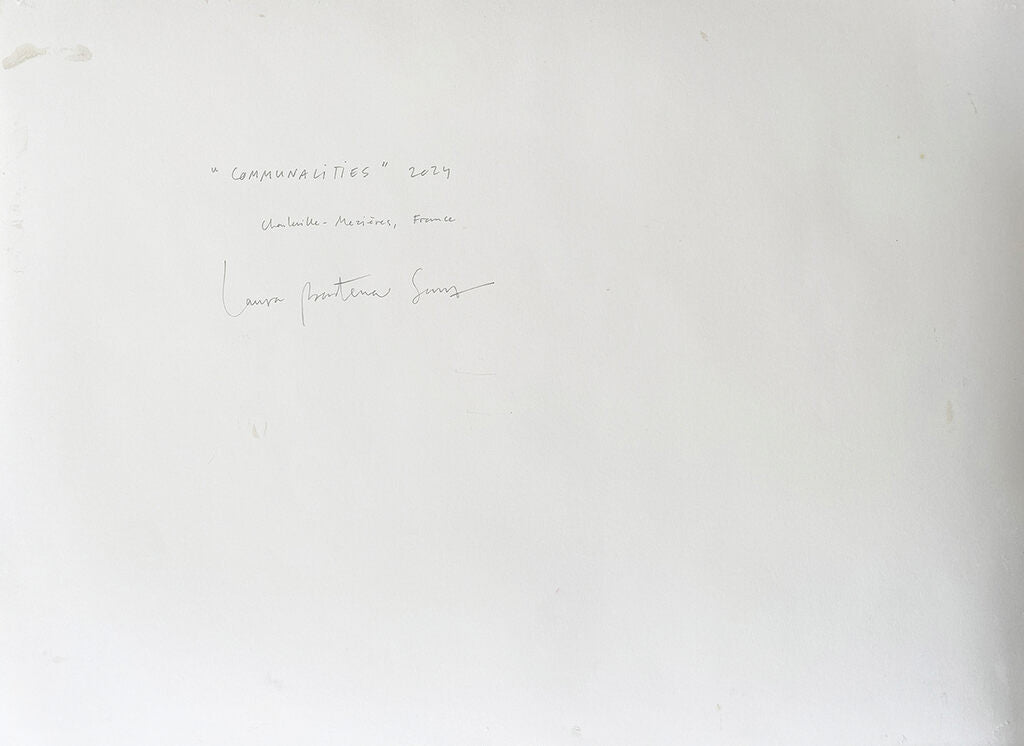 "COMMUNALITIES" 2024
Charleville-Mezières, France
Laura